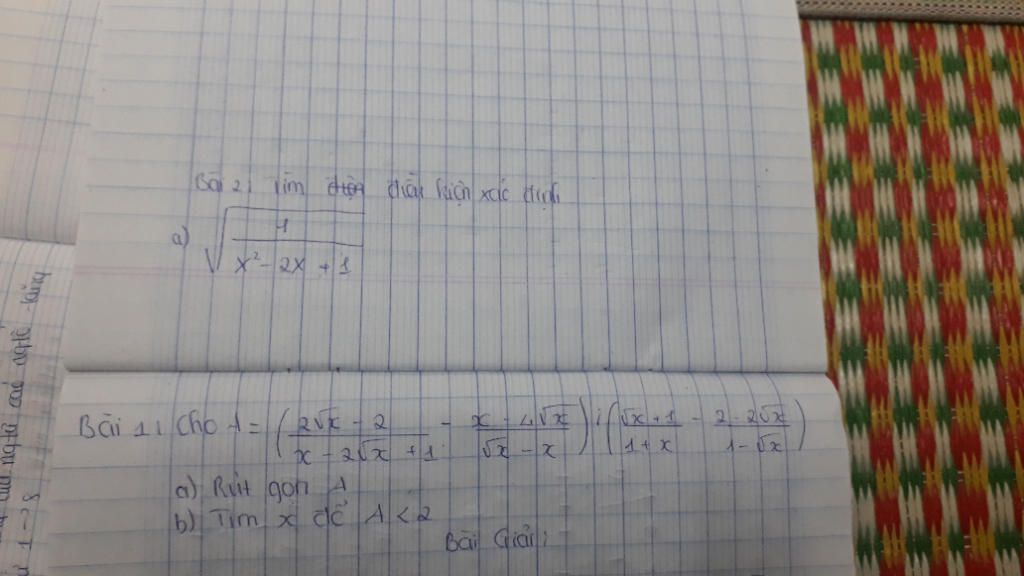 Bài 2: Tìm điện điều kiện xác định
a) √(1/(x² - 2x + 1))
Bài 1: Cho A = ((2√x - 2)/(x - 2√x + 1) - (x - 4√x)/(√x - x)) : ((√x + 1)/(1 + x) - (2 - 2√x)/(1 - √x))
a) Rút gọn A
b) Tìm x để A < 2
Bài Giải: